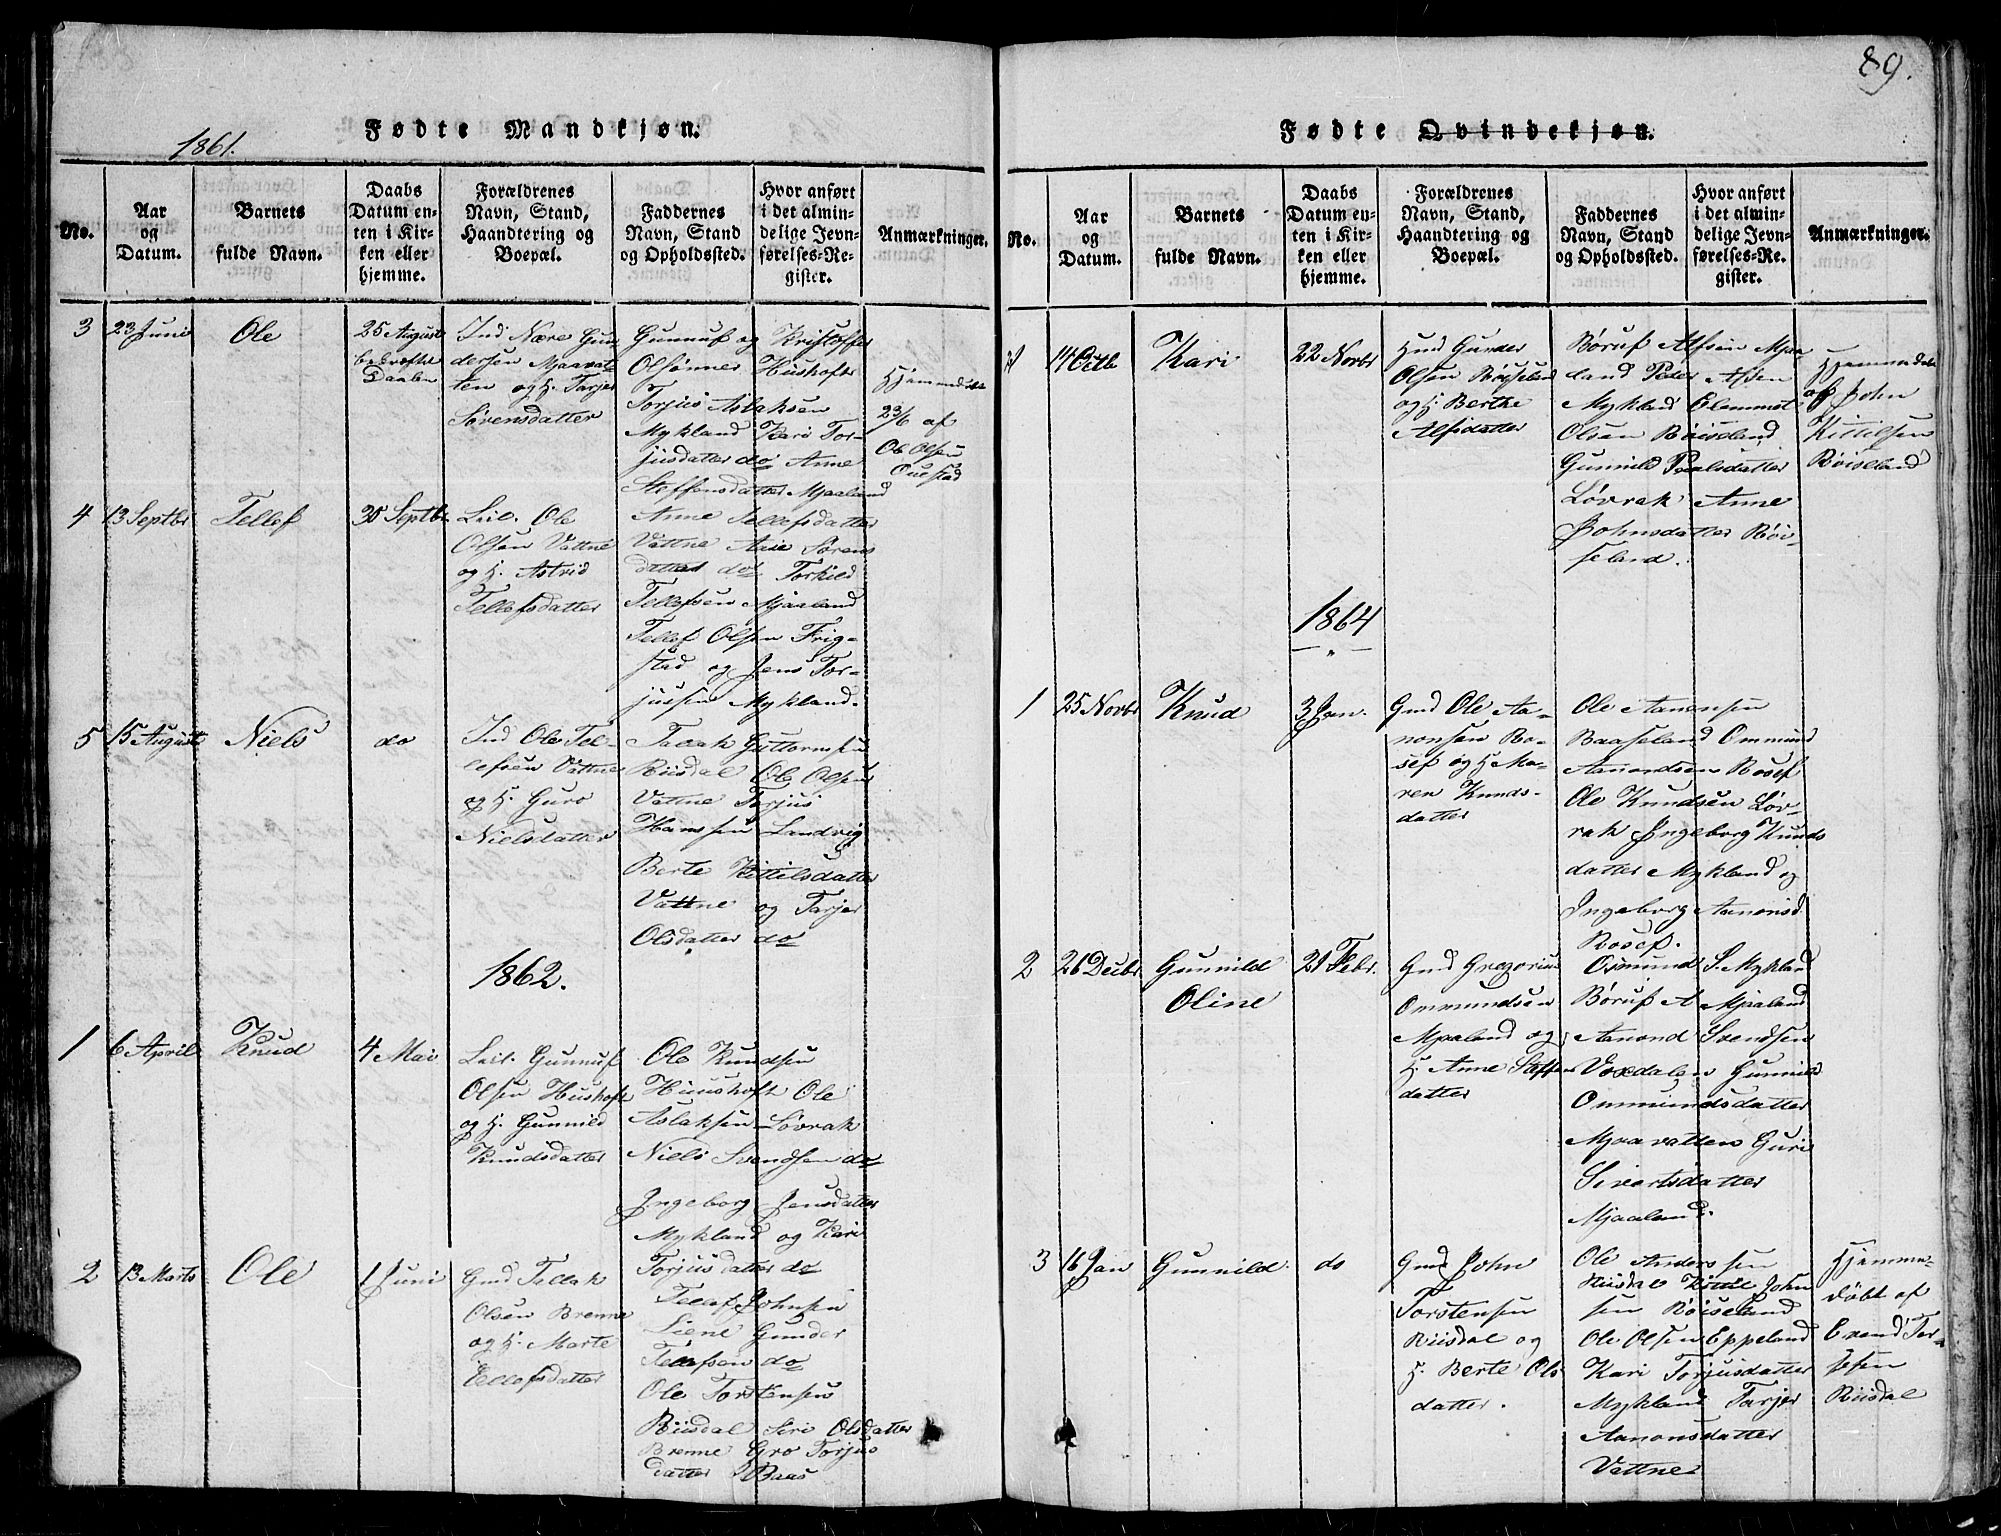 Fødte Mandkjøn.
1861.
No.
Aar
og
Datum.
Barnets
fulde Navn.
Daabs
Datum en-
ten i Kir-
ken eller
hjemme.
Forældrenes
Navn, Stand,
Haandtering og
Boepæl.
Faddernes
Navn, Stand
og Opholdssted.
Hvor anført
i det almin-
delige Jevn-
førelses-Re-
gister.
Anmærkninger.
3
23 Juni
Ole
25 August
bekræftet
Daaben
Ind. Nære Gun
dersen Mjaavat-
ten og H. Tarjer
Sørensdatter
Gunnuf og Kristoffer
Olsønner Hushoft
Torjus Aslaksen
Mykland Kari Tor-
jusdatter do Anne
Steffensdatter Mjaaland
Hjemmedøbt
23/6 af
Ole Olsen
Ouestad
4
13 Septbr
Tellef
30 Septbr
Leil. Ole
Olsen Vattne
og H. Astrid
Tellefsdatter
Anne Tellefsdatter
Vattne Aase Sørens
datter do Torkild
Tellefsen Mjaaland
Tellef Olsen Frig-
stad og Jens Tor-
jussen Mykland.
5
15 August
Niels
do
Ind Ole Tel-
lefsen Vattne
og H. Guro
Nielsdatter
Tallak Guttormsen
Riisdal Ole Olsen
Vattne Tarjus
Hansen Landvig
Berte Kittilsdatter
Vattne og Tarjer
Olsdatter do
1862.
1
6 April
Knud
4 Mai
Leil. Gunnuf
Olsen Hushoft
og H. Gunnild
Knudsdatter
Ole Knudsen
Huushoft Ole
Aslaksen Løvrak
Niels Svendsen do
Ingeborg Jensdatter
Mykland og Kari
Torjusdatter do
2
13 Marts
Ole
1 Juni
Gmd Tallak
Olsen Brenne
og H. Marte
Tellefsdatter
Tellef Johnsen
Liene Gunder
Tellefsen do
Ole Torstensen
Riisdal Seri Olsdatter
Brenne Gro Torjus
datter Baas
89.
Fødte Qvindekjøn.
No.
Aar
og
Datum.
Barnets
fulde Navn.
Daabs
Datum en-
ten i Kir-
ken eller
hjemme.
Forældrenes
Navn, Stand,
Haandtering og
Boepæl.
Faddernes
Navn, Stand
og Opholdssted.
Hvor anført
i det almin-
delige Jevn-
førelses-Re-
gister.
Anmærkninger.
14 Octb
Kari
22 Novbr
Hmd Gunder
Olsen Røiseland
og H Berthe
Alfsdatter
Børuf Alfsen Mjaa
land Peder Alfsen
Mykland Clemmet
Olsen Røiseland
Gunnild Paalsdatter
Løvrak Anne
Johnsdatter Røi-
seland.
Hjemmedøbt
af John
Kittilsen
Røiseland
1864
1
25 Novbr
Knud
3 Jan.
Gmd Ole Aa-
nonsen Ro-
sef og H Ma-
ren Knuds-
datter
Ole Aanonsen
Baaseland Ommund
Aanondsen Rosef
Ole Knudsen Løv-
rak Ingeborg Knuds
datter Mykland og
Ingeborg Aanonsd.
Rosef.
2
26 Decbr
Gunnild
Oline
21 Febr.
Gmd Gregorius
Ommundsen
Mjaaland og
H Anne Steffens
datter
Osmund S. Mykland
Børuf A Mjaaland
Aanond Svendsen
Vexdalen Gunnild
Ommundsdatter
Mjaavatten Guri
Sivertsdatter
Mjaaland.
3
16 Jan
Gunnild.
do
Gmd John
Torstensen
Riisdal og
H. Berte Ols
datter.
Ole Anderssen
Riisdal Kittil John
sen Røiseland
Ole Olsen Eppeland
Kari Torjusdatter
Mykland Tarjer
Aanonsdatter
Vattne
Hjemme-
døbt af
Evend Ter-
jesen
Riisdal